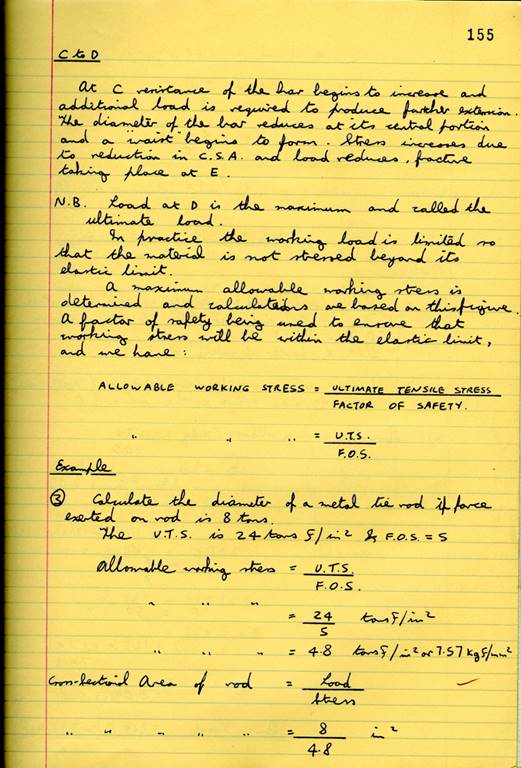 155
C to D
At C resistance of the bar begins to increase and
additional load is required to produce further extension.
The diameter of the bar reduces at its central portion
and a "waist" begins to form. Stress increases due
to reduction in C.S.A. and load reduces, fracture
taking place at E.
N.B. Load at D is the maximum and called the
ultimate load.
In practice the working load is limited so
that the material is not stressed beyond its
elastic limit.
A maximum allowable working stress is
determined and calculations are based on this figure.
A factor of safety being used to ensure that
working stress will be within the elastic limit,
and we have :
ALLOWABLE WORKING STRESS = ULTIMATE TENSILE STRESS
FACTOR OF SAFETY.
" " " = U.T.S.
F.O.S.
Example
③ Calculate the diameter of a metal tie rod if force
exerted on rod is 8 tons.
The U.T.S. is 24 tons f/in² & F.O.S. = 5
Allowable working stress = U.T.S.
F.O.S.
" " " = 24 tons f/in²
5
" " " = 4.8 tons f/in² or 7.57 kg f/mm²
Cross-Sectional Area of rod = Load
Stress
" " " " " = 8 in²
4.8